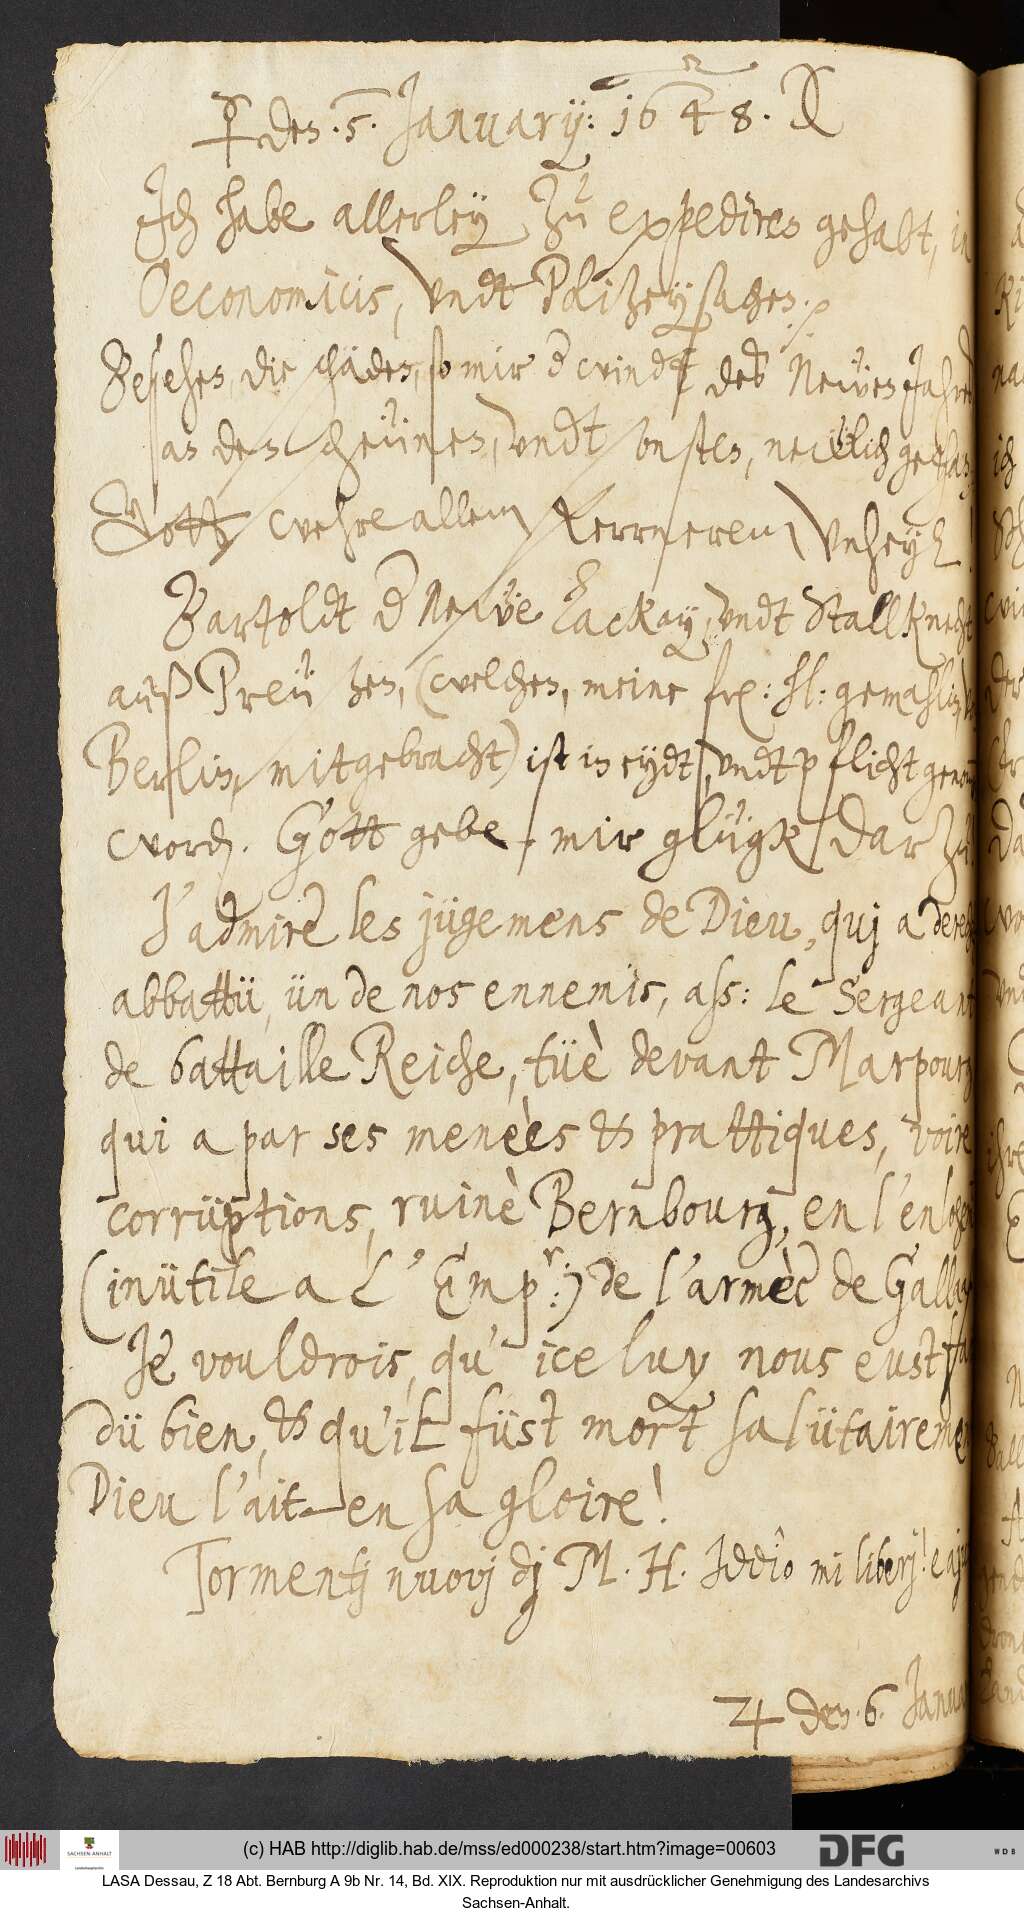 ☿ den 5. January: 1648.
Ich habe allerley zu expediren gehabt, in
Oeconomicis, undt Polizeysachen.
Besehen, die schäden, so mir der windt des Neuen Jahres
an den Scheünen, undt sonsten, neulich gethan.
Gott wehre allem ferrneren Unheyl!
Bartoldt der Neue Lackay, undt Stallknecht
auß Preußen, (welchen, meine fr: hl: gemahlin, von
Berlin, mitgebracht) ist in eydt, undt pflicht
worden. Gott gebe mir glügk darzu.
J'admire les jügemens de Dieu, quj a derechef
abbattü, ün de nos ennemis, ass: le Sergeant
de battaille Reiche, tüè devant Marpourg
qui a par ses menèes & prattiques, voire
corrüptions, ruinè Bernbourg, en l'
(inütile a L'Emp:r) de l'armèe de Gallas
Je vouldrois, qu'iceluy nous eust fa
dü bien, & qu'il füst mort salütairement
Dieu l'ait en sa gloire!
Tormentj nuovj dj M. H. Iddio mi liberj! e
♃ den 6. Januar
(c) HAB http://diglib.hab.de/mss/ed000238/start.htm?image=00603
SACHSEN-ANHALT
DFG
WDB
LASA Dessau, Z 18 Abt. Bernburg A 9b Nr. 14, Bd. XIX. Reproduktion nur mit ausdrücklicher Genehmigung des Landesarchivs
Sachsen-Anhalt.